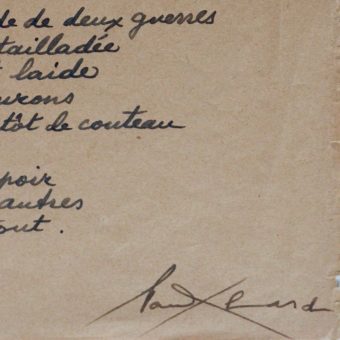 de de deux guerres
tailladée
t laide
urons
tôt de couteau
poir
autres
out.